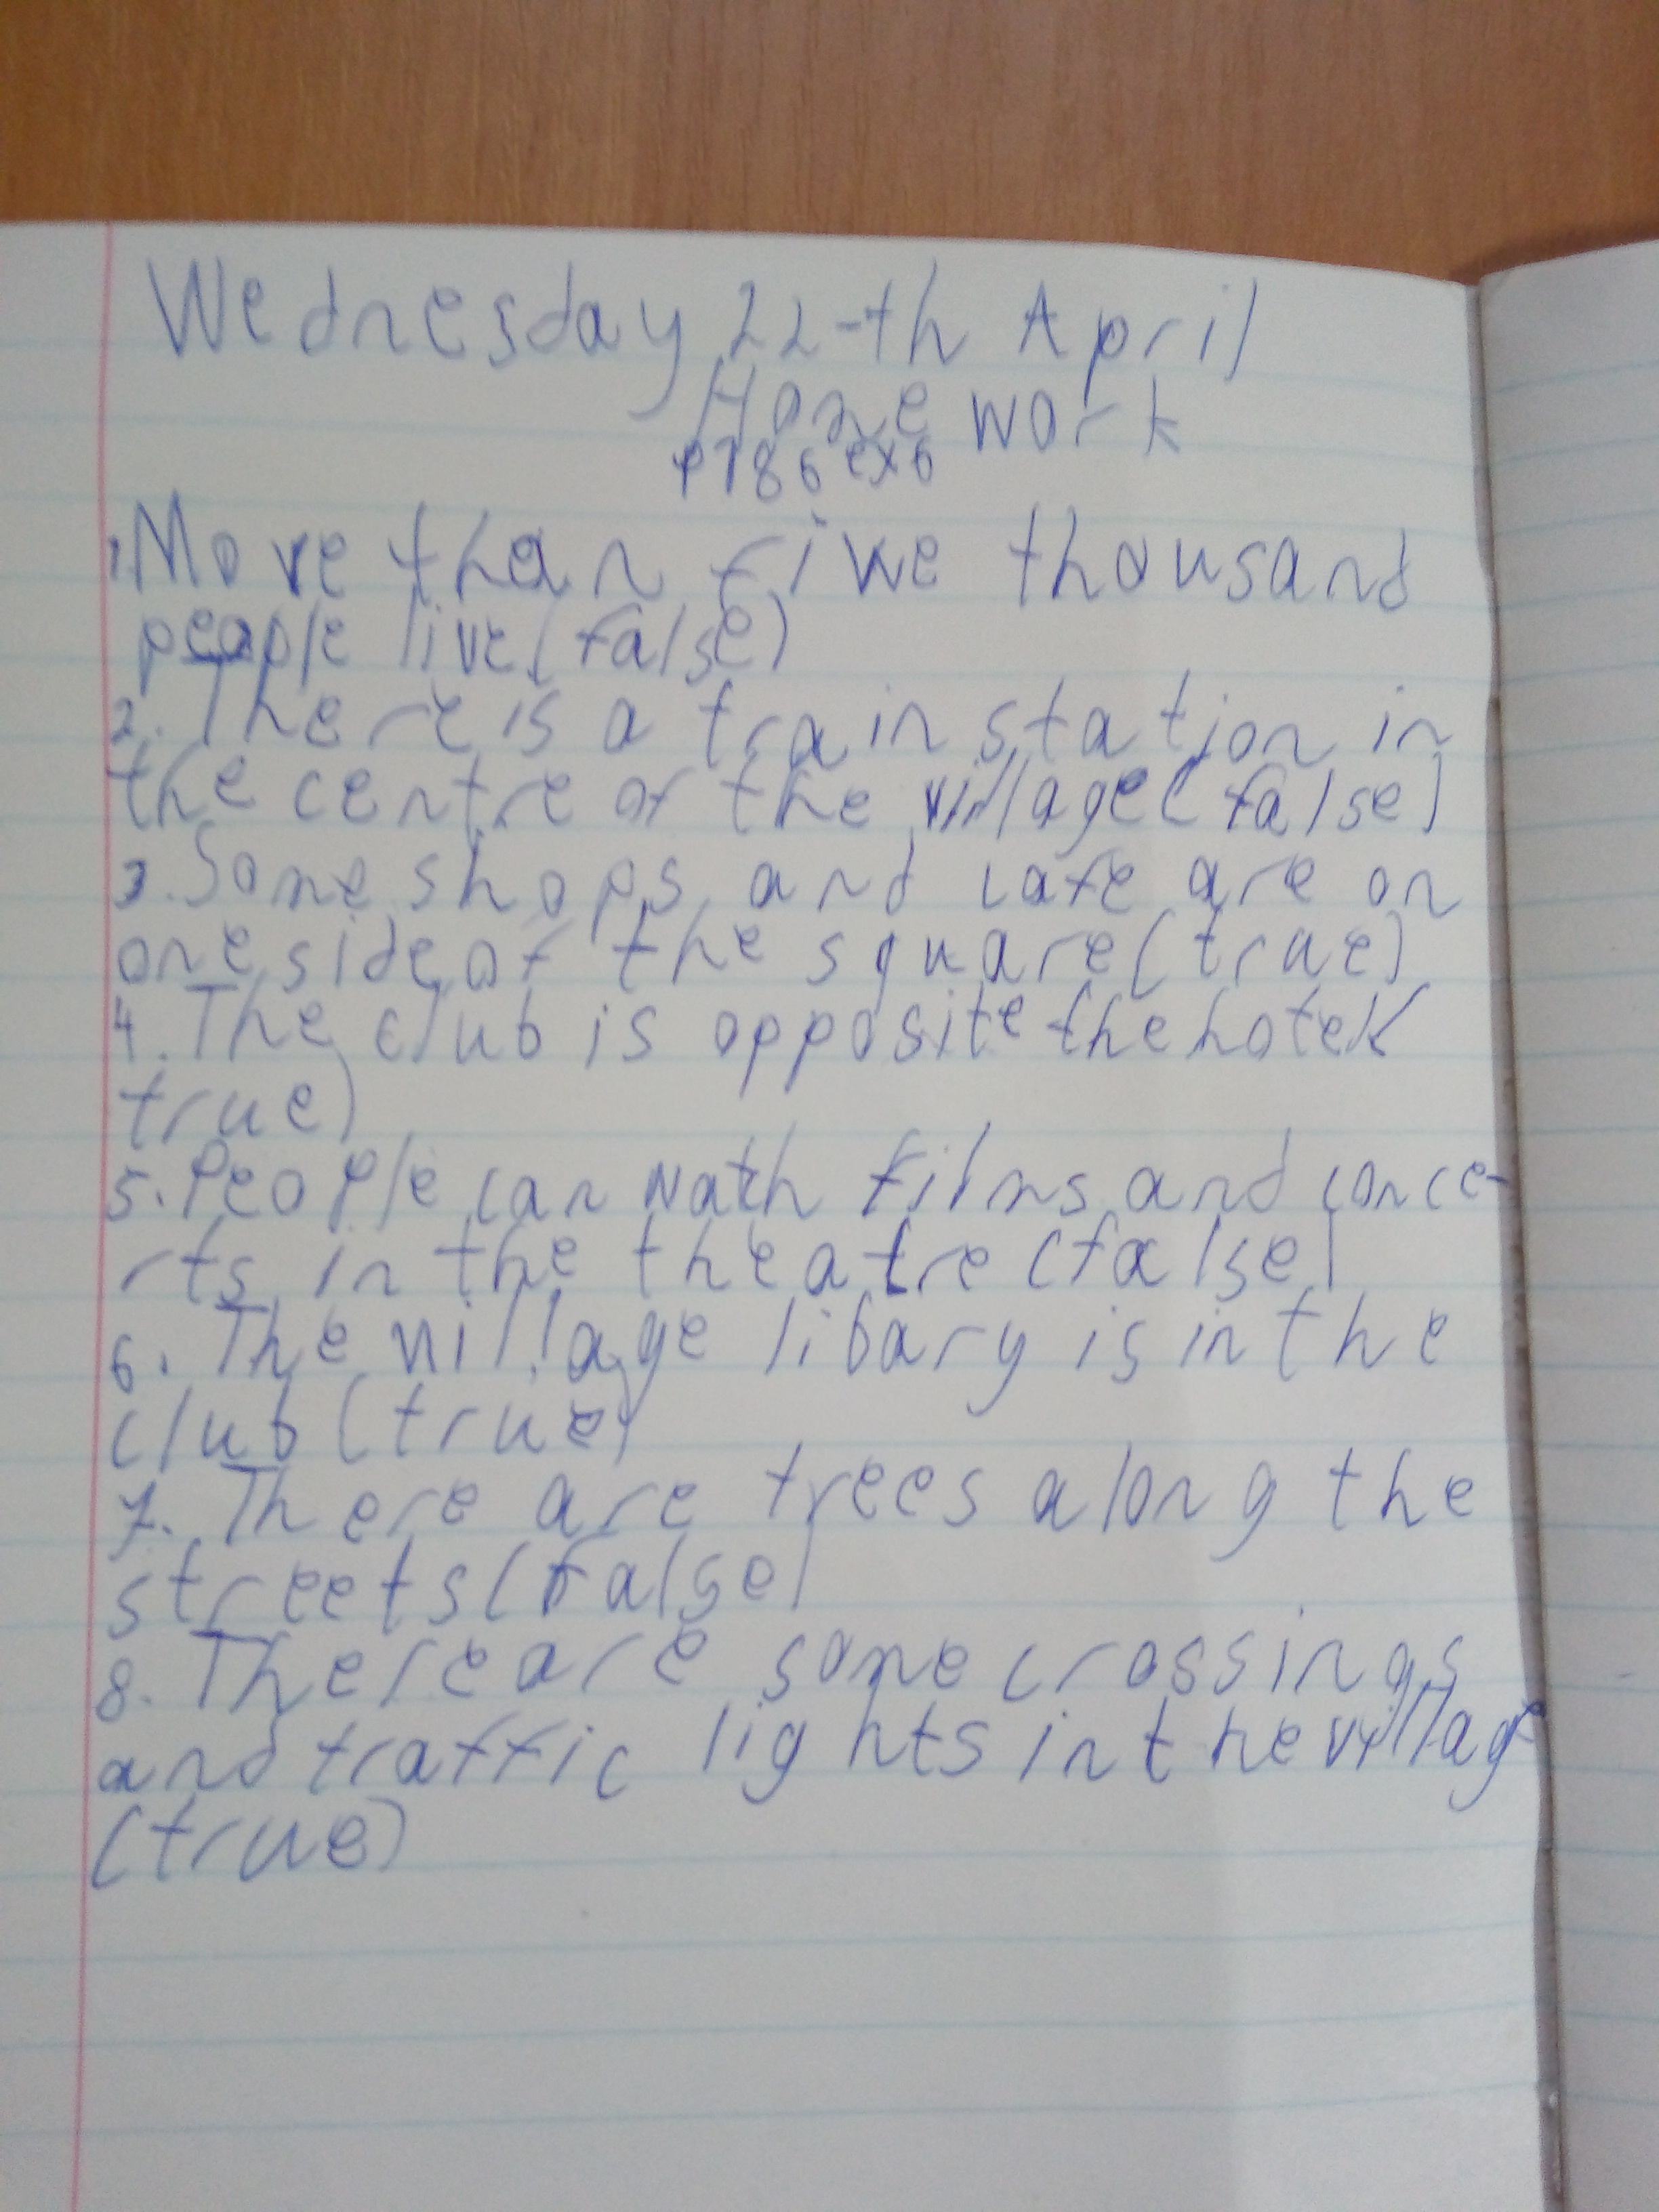 Wednesday 22-th April
Home work
p186 ex6
1. More than five thousand
people live (false)
2. There is a train station in
the centre of the village (false)
3. Some shops and cafe are on
one side of the square (true)
4. The club is opposite the hotel (
true)
5. People can wath films and conce-
rts in the theatre (false)
6. The village libary is in the
club (true)
7. There are trees along the
streets (false)
8. There are some crossings
and traffic lights in the village
(true)